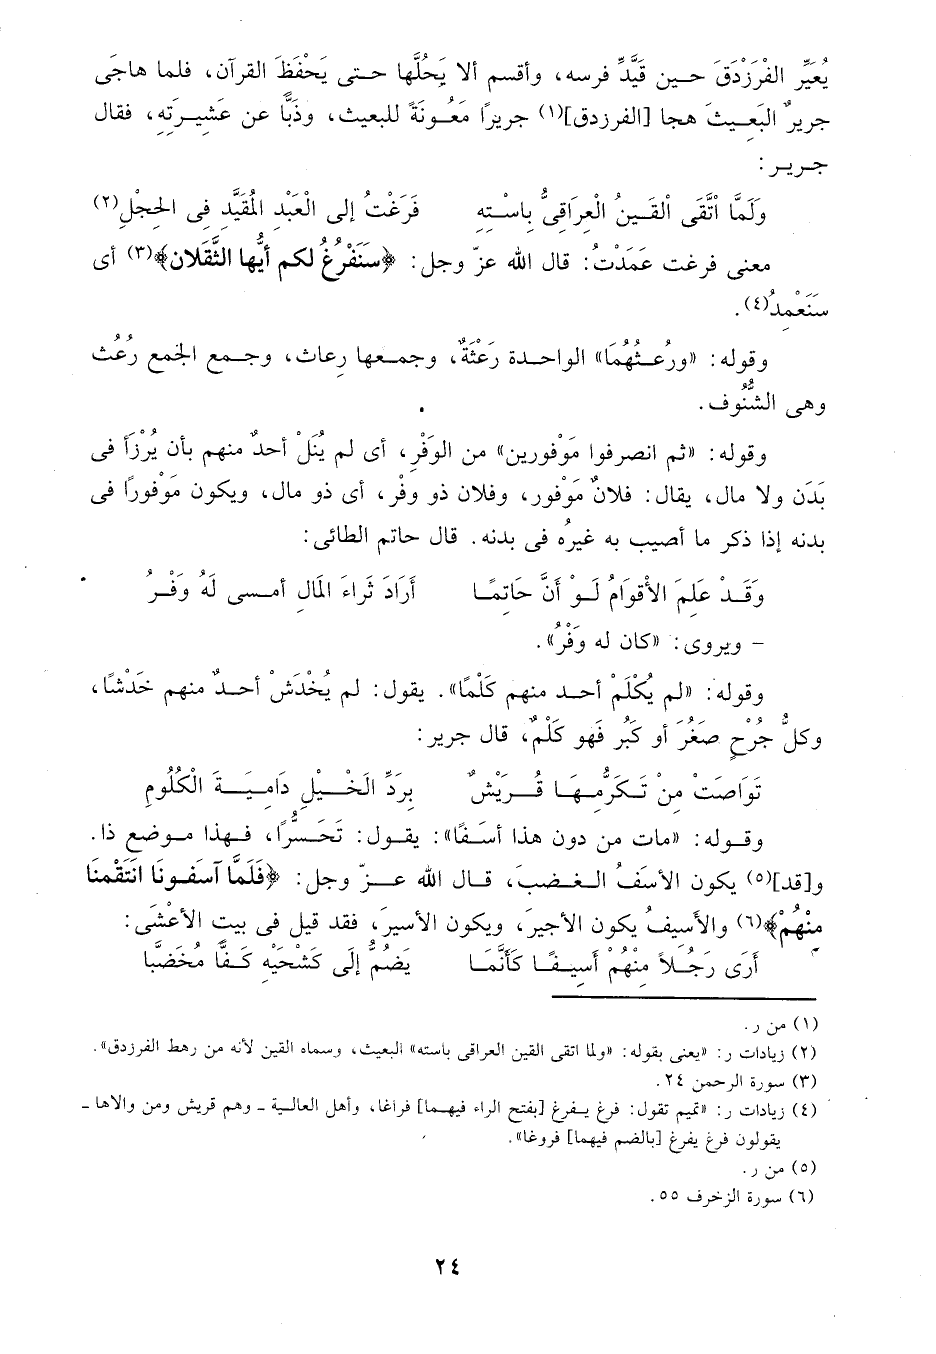 يُعَيِّر الفْرَزْدَقَ حـين قَيَّدِّ فرسه، وأقسم ألا يَحُلَّها حـتى يَحْفَظَ القرآن، فلما هاجَى
جريرٌ البَعِيثَ هجا [الفرزدق](١) جريرًا مَعُونَةً للبعيث، وذَبًّا عن عَشِيرَتِهِ، فقال
جـريـر :
وَلَمَّا اتَّقَى الْقَـينُ الْعِرَاقِىُّ بِاسْـتِهِ     فَرَغْتُ إلى الْعَبْدِ الْمُقَيَّدِ فِى الحِجْلِ(٢)
معنى فرغت عَمَدْتُ: قال الله عزّ وجل: ﴿سَنَفْرُغُ لكم أيُّها الثَّقَلان﴾(٣) أى
سَنَعْمِدُ(٤).
وقوله: «ورُعـثُهُمَا» الواحـدة رَعْثَةٌ، وجـمـعها رِعاث، وجـمع الجمع رُعُث
وهى الشُّنُوف.
وقوله: «ثم انصرفوا مَوْفورين» من الوَفْرِ، أى لم يُنَلْ أحدٌ منهم بأن يُرْزَأَ فى
بَدَن ولا مال، يقال: فلانٌ مَوْفور، وفلان ذو وفْرٍ، أى ذو مال، ويكون مَوْفورًا فى
بدنه إذا ذكر ما أصيب به غيرُه فى بدنه. قال حاتم الطائى:
وَقَـدْ عَلِمَ الأقْوَامُ لَـو أنَّ حَاتِمًـا     أرَادَ ثَراءَ المَالِ أمـسى لَهُ وَفْـرُ
– ويروى: «كان له وَفْرُ».
وقوله: «لم يُكْلَمْ أحـد منهم كَلْمًا». يقول: لم يُخْدَشْ أحـدٌ منهم خَدْشًا،
وكلُّ جُرْحٍ صَغُرَ أو كَبُر فَهو كَلْمٌ، قال جرير:
تَوَاصَتْ مِنْ تَـكَرُّمِـهَـا قُـرَيْشٌ     بِرَدِّ الخَـيْـلِ دَامِيَـةَ الْكُلُومِ
وقـولـه: «مات من دون هذا أسَـفًا»: يقـول: تَحَـسُّرًا، فـهذا مـوضع ذا.
و[قد](٥) يكون الأسَفُ الـغـضبَ، قـال الله عـزّ وجل: ﴿فَلَمَّا آسَفُونَا انتَقَمْنَا
مِنْهُمْ﴾(٦) والأسِيفُ يكون الأجيرَ، ويكون الأسيرَ، فقد قيل فى بيت الأعْشَى:
أرَى رَجُـلاً مِنْهُمْ أسِيـفًـا كَأنَّمَـا     يَضُمُّ إلَى كَشْحَيْهِ كَـفًّا مُخَضَّبا
(١) من ر.
(٢) زيادات ر: «يعنى بقوله: «ولما اتقى القين العراقى باسته» البعيث، وسماه القين لأنه من رهط الفرزدق».
(٣) سورة الرحمن ٢٤.
(٤) زيادات ر: «تميم تقول: فرغ يـفرغ [بفتح الراء فيهـما] فراغا، وأهل العالـية ـ وهم قريش ومن والاها ـ
يقولون فرغ يفرغ [بالضم فيهما] فروغا».
(٥) من ر.
(٦) سورة الزخرف ٥٥.
٢٤